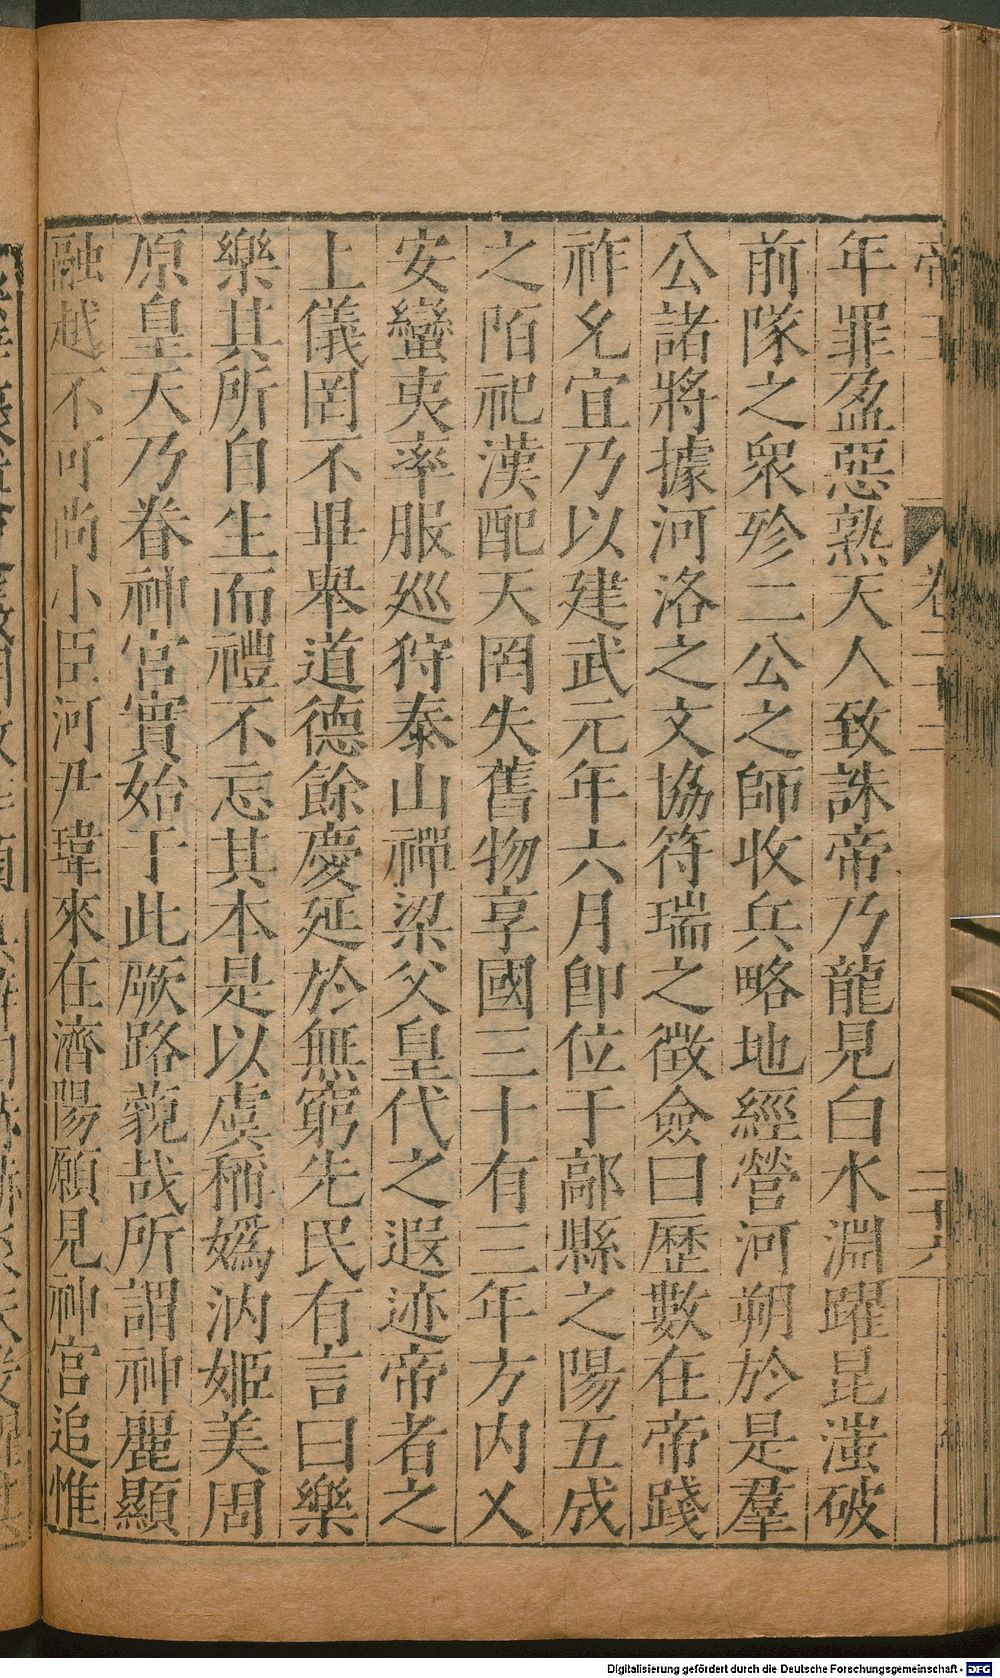 年罪盈惡熟天人致誅帝乃龍見白水淵躍昆滍破
前隊之衆殄二公之師收兵略地經營河朔於是羣
公諸將據河洛之文協符瑞之徵僉曰歷數在帝踐
祚允宜乃以建武元年六月卽位于鄗縣之陽五成
之陌祀漢配天罔失舊物享國三十有三年方内乂
安蠻夷率服巡狩泰山禪梁父皇代之遐迹帝者之
上儀罔不畢舉道德餘慶延於無窮先民有言曰樂
樂其所自生而禮不忘其本是以虞稱嬀汭姬美周
原皇天乃眷神宮實始于此厥路藐哉所謂神麗顯
融越不可尚小臣河尹瑋來在濟陽願見神宮追惟
Digitalisierung gefördert durch die Deutsche Forschungsgemeinschaft - DFG